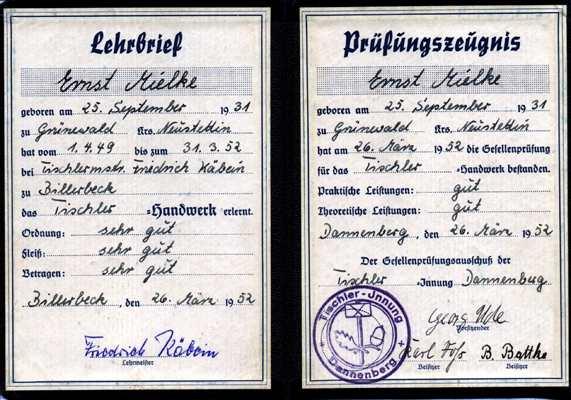 Lehrbrief
Ernst Mielke
geboren am 25. September 1931
zu Grünewald Krs. Neustettin
hat vom 1.4.49 bis zum 31.3.52
bei Tischlermstr. Friedrich Käbein
zu Billerbeck
das Tischler =Handwerk erlernt.
Ordnung: sehr gut
Fleiß: sehr gut
Betragen: sehr gut
Billerbeck, den 26. März 1952
Friedrich Käbein
Lehrmeister
Prüfungszeugnis
Ernst Mielke
geboren am 25. September 1931
zu Grünewald Krs. Neustettin
hat am 26. März 1952 die Gesellenprüfung
für das Tischler =Handwerk bestanden.
Praktische Leistungen: gut
Theoretische Leistungen: gut
Dannenberg, den 26. März 1952
Der Gesellenprüfungsausschuß der
Tischler =Innung Dannenberg
Georg
Vorsitzender
Karl B. Bathke
Beisitzer Beisitzer
Tischler-Innung
Dannenberg